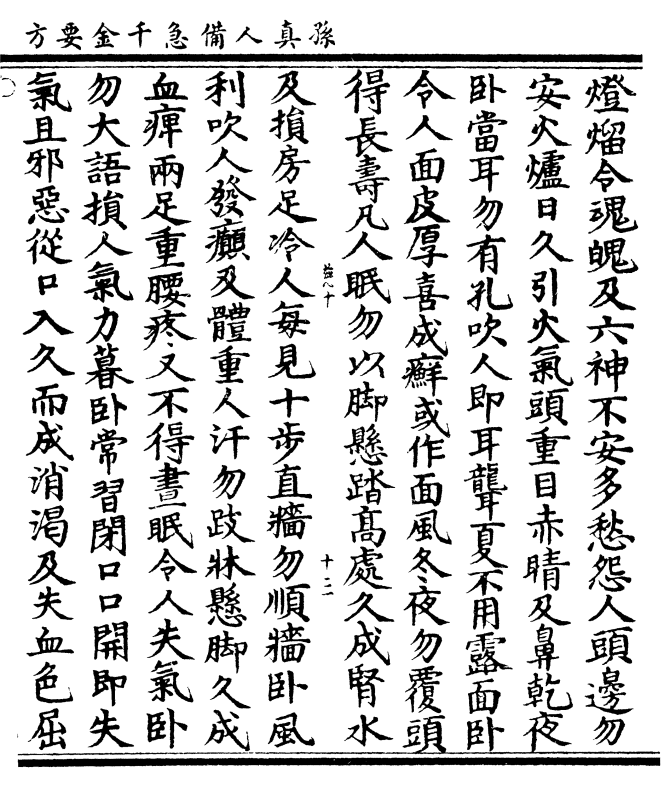 孫真人備急千金要方
燈熘令魂魄及六神不安多愁怨人頭邊勿
安火爐日久引火氣頭重目赤睛及鼻乾夜
卧當耳勿有孔吹人即耳聾夏不用露面卧
令人面皮厚喜成癬或作面風冬夜勿覆頭
得長壽凡人眠勿以脚懸踏高處久成腎水
及損房足冷人每見十步直牆勿順牆卧風
利吹人發癲及體重人汗勿跂牀懸脚久成
血痺兩足重腰疼又不得晝眠令人失氣卧
勿大語損人氣力暮卧常習閉口口開即失
氣且邪惡從口入久而成消渴及失血色屈
十二